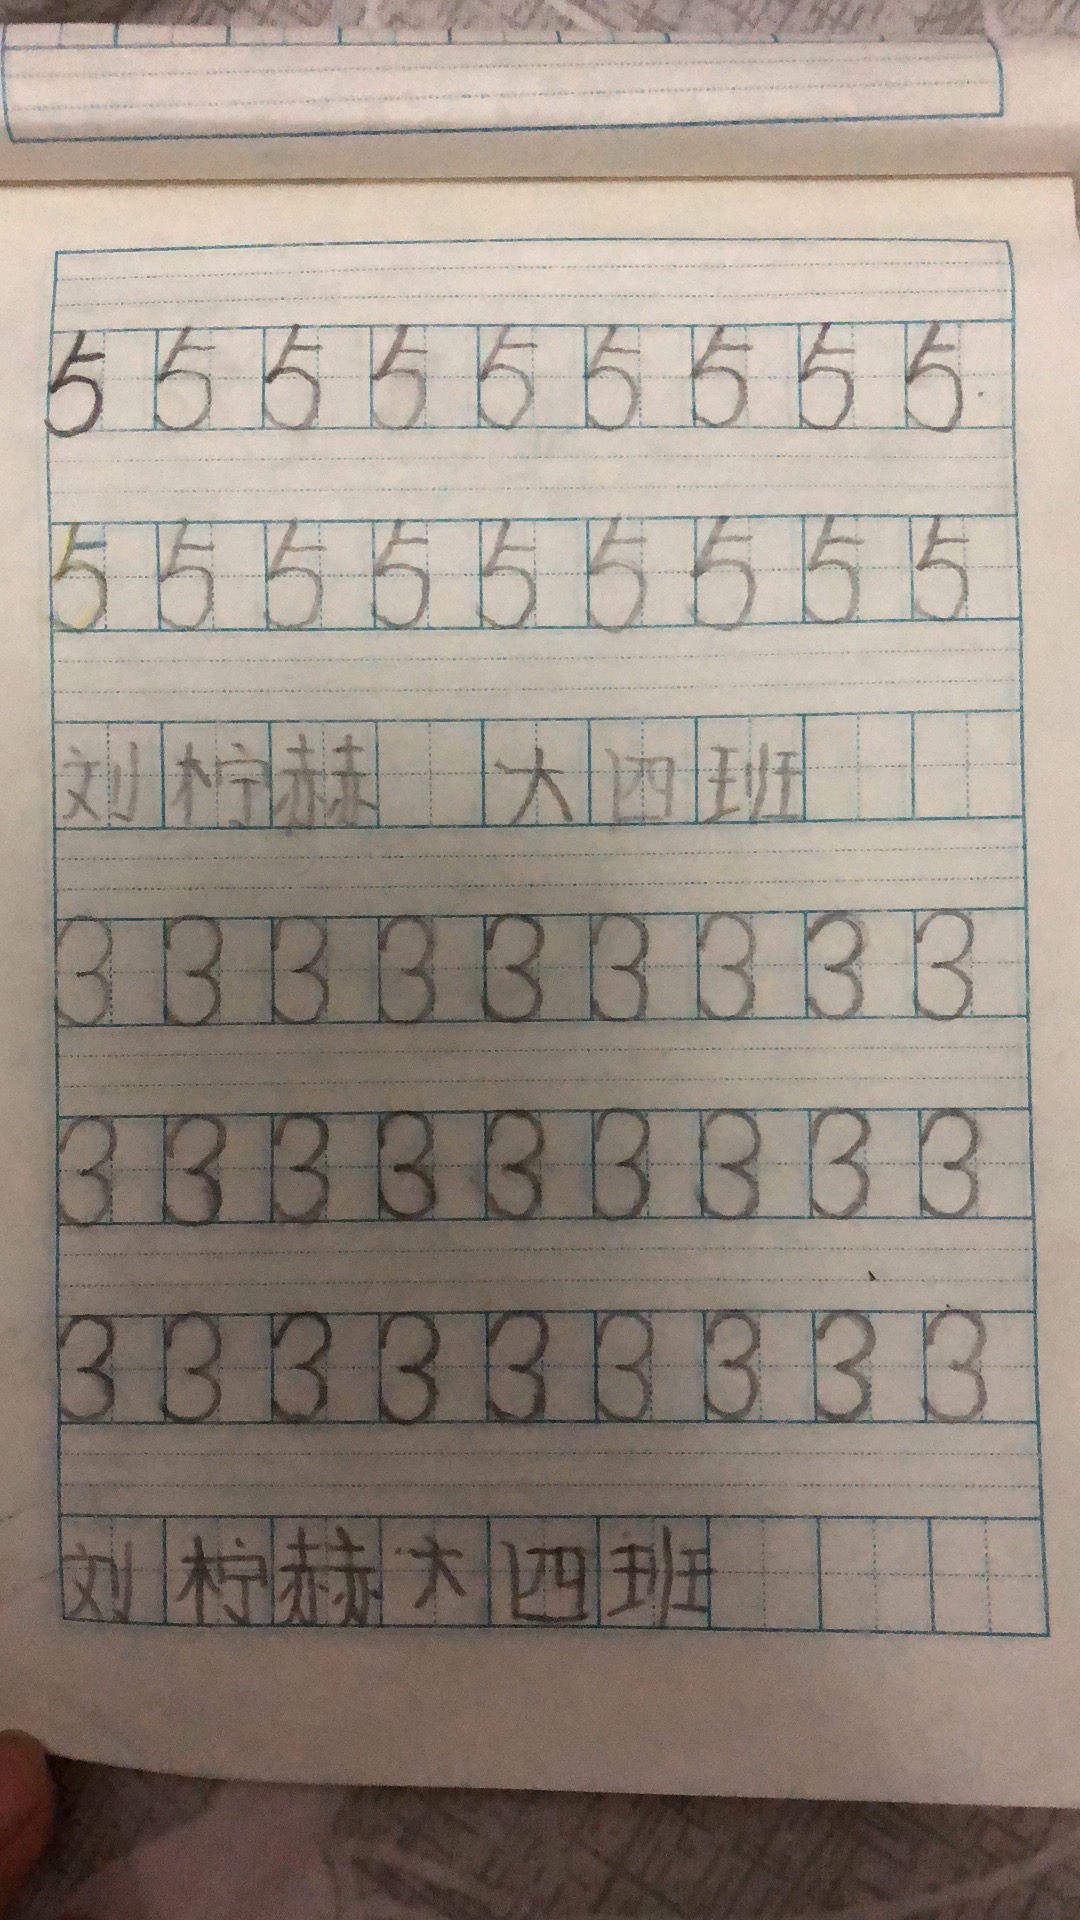 5 5 5 5 5 5 5 5 5
5 5 5 5 5 5 5 5 5
刘柠赫 大四班
3 3 3 3 3 3 3 3 3
3 3 3 3 3 3 3 3 3
3 3 3 3 3 3 3 3 3
刘柠赫大四班